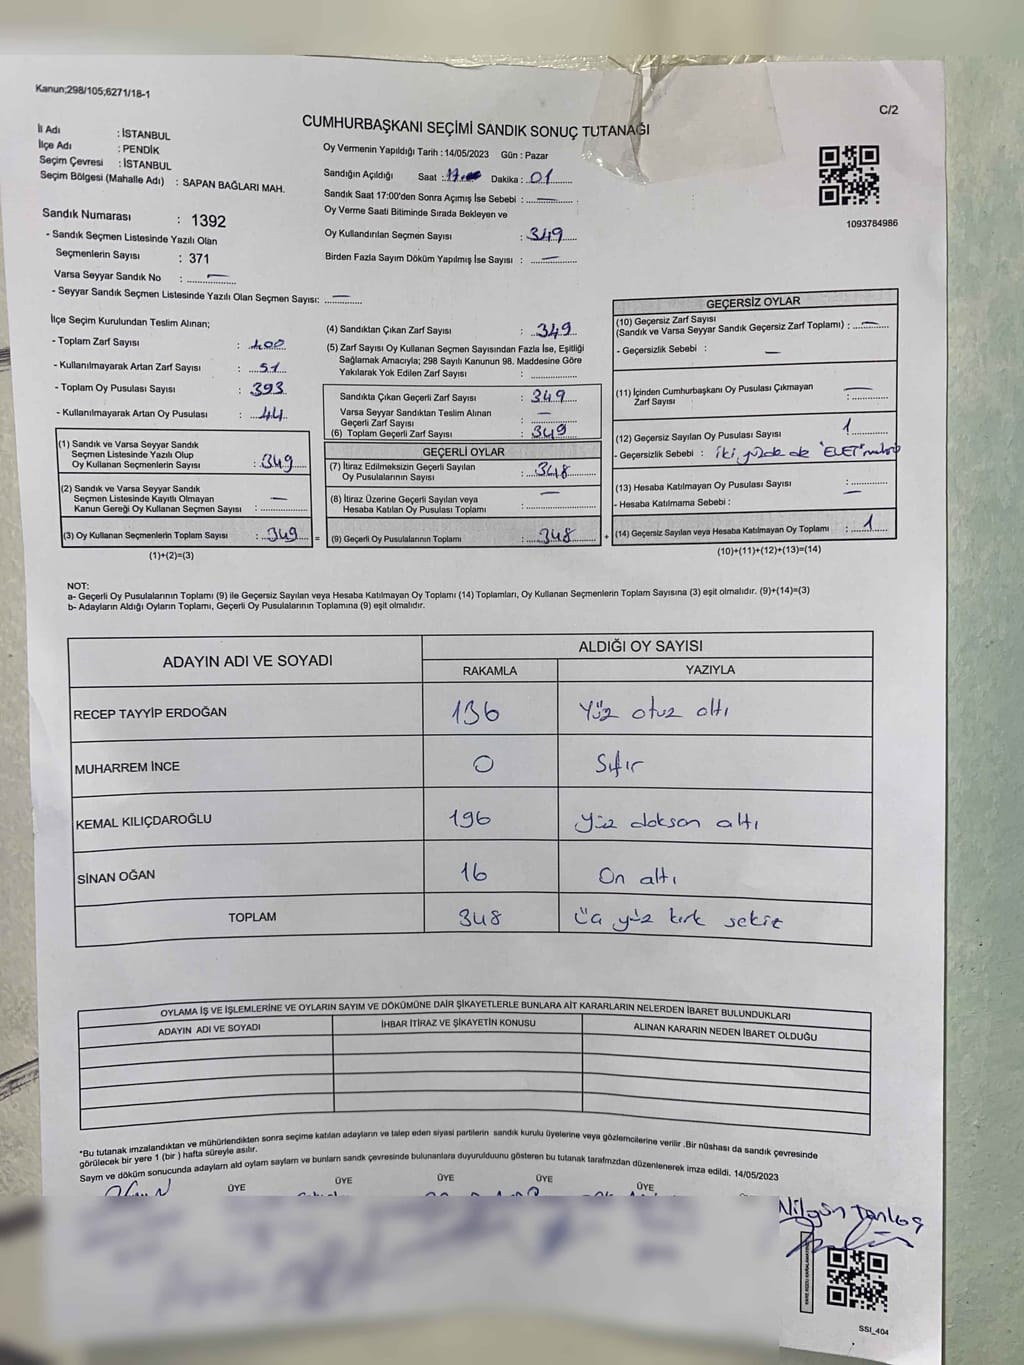 Kanun;298/105;6271/18-1
C/2
CUMHURBAŞKANI SEÇİMİ SANDIK SONUÇ TUTANAĞI
İl Adı : İSTANBUL
İlçe Adı : PENDİK
Seçim Çevresi : İSTANBUL
Seçim Bölgesi (Mahalle Adı) : SAPAN BAĞLARI MAH.
Oy Vermenin Yapıldığı Tarih : 14/05/2023 Gün : Pazar
Sandığın Açıldığı Saat : 17 Dakika : 01
Sandık Saat 17:00'den Sonra Açımış İse Sebebi : —
Oy Verme Saati Bitiminde Sırada Bekleyen ve
Oy Kullandırılan Seçmen Sayısı : 349
Birden Fazla Sayım Döküm Yapılmış İse Sayısı : —
1093784986
Sandık Numarası : 1392
- Sandık Seçmen Listesinde Yazılı Olan
Seçmenlerin Sayısı : 371
Varsa Seyyar Sandık No : —
- Seyyar Sandık Seçmen Listesinde Yazılı Olan Seçmen Sayısı: —
İlçe Seçim Kurulundan Teslim Alınan;
- Toplam Zarf Sayısı : 400
- Kullanılmayarak Artan Zarf Sayısı : 51
- Toplam Oy Pusulası Sayısı : 393
- Kullanılmayarak Artan Oy Pusulası : 44
(1) Sandık ve Varsa Seyyar Sandık
Seçmen Listesinde Yazılı Olup
Oy Kullanan Seçmenlerin Sayısı : 349
(2) Sandık ve Varsa Seyyar Sandık
Seçmen Listesinde Kayıtlı Olmayan
Kanun Gereği Oy Kullanan Seçmen Sayısı : —
(3) Oy Kullanan Seçmenlerin Toplam Sayısı : 349 =
(1)+(2)=(3)
(4) Sandıktan Çıkan Zarf Sayısı : 349
(5) Zarf Sayısı Oy Kullanan Seçmen Sayısından Fazla İse, Eşitliği
Sağlamak Amacıyla; 298 Sayılı Kanunun 98. Maddesine Göre
Yakılarak Yok Edilen Zarf Sayısı :
Sandıkta Çıkan Geçerli Zarf Sayısı : 349
Varsa Seyyar Sandıktan Teslim Alınan
Geçerli Zarf Sayısı : —
(6) Toplam Geçerli Zarf Sayısı : 349
GEÇERLİ OYLAR
(7) İtiraz Edilmeksizin Geçerli Sayılan
Oy Pusulalarının Sayısı : 348
(8) İtiraz Üzerine Geçerli Sayılan veya
Hesaba Katılan Oy Pusulası Toplamı : —
(9) Geçerli Oy Pusulalarının Toplamı : 348 +
GEÇERSİZ OYLAR
(10) Geçersiz Zarf Sayısı
(Sandık ve Varsa Seyyar Sandık Geçersiz Zarf Toplamı) : —
- Geçersizlik Sebebi : —
(11) İçinden Cumhurbaşkanı Oy Pusulası Çıkmayan
Zarf Sayısı : —
(12) Geçersiz Sayılan Oy Pusulası Sayısı : 1
- Geçersizlik Sebebi : iki yüzde de 'EVET'
(13) Hesaba Katılmayan Oy Pusulası Sayısı : —
- Hesaba Katılmama Sebebi :
(14) Geçersiz Sayılan veya Hesaba Katılmayan Oy Toplamı : 1
(10)+(11)+(12)+(13)=(14)
NOT:
a- Geçerli Oy Pusulalarının Toplamı (9) ile Geçersiz Sayılan veya Hesaba Katılmayan Oy Toplamı (14) Toplamları, Oy Kullanan Seçmenlerin Toplam Sayısına (3) eşit olmalıdır. (9)+(14)=(3)
b- Adayların Aldığı Oyların Toplamı, Geçerli Oy Pusulalarının Toplamına (9) eşit olmalıdır.
ADAYIN ADI VE SOYADI ALDIĞI OY SAYISI
RAKAMLA YAZIYLA
RECEP TAYYİP ERDOĞAN 136 Yüz otuz altı
MUHARREM İNCE 0 Sıfır
KEMAL KILIÇDAROĞLU 196 yüz doksan altı
SİNAN OĞAN 16 On altı
TOPLAM 348 Üç yüz kırk sekiz
OYLAMA İŞ VE İŞLEMLERİNE VE OYLARIN SAYIM VE DÖKÜMÜNE DAİR ŞİKAYETLERLE BUNLARA AİT KARARLARIN NELERDEN İBARET BULUNDUKLARI
ADAYIN ADI VE SOYADI İHBAR İTİRAZ VE ŞİKAYETİN KONUSU ALINAN KARARIN NEDEN İBARET OLDUĞU
*Bu tutanak imzalandıktan ve mühürlendikten sonra seçime katılan adayların ve talep eden siyasi partilerin sandık kurulu üyelerine veya gözlemcilerine verilir .Bir nüshası da sandık çevresinde
görülecek bir yere 1 (bir ) hafta süreyle asılır.
Sayım ve döküm sonucunda adayların ald oyların sayların ve bunların sandk çevresinde bulunanlara duyurulduunu gösteren bu tutanak tarafmzdan düzenlenerek imza edildi. 14/05/2023
ÜYE ÜYE ÜYE ÜYE ÜYE
Nilgün
SSI_404